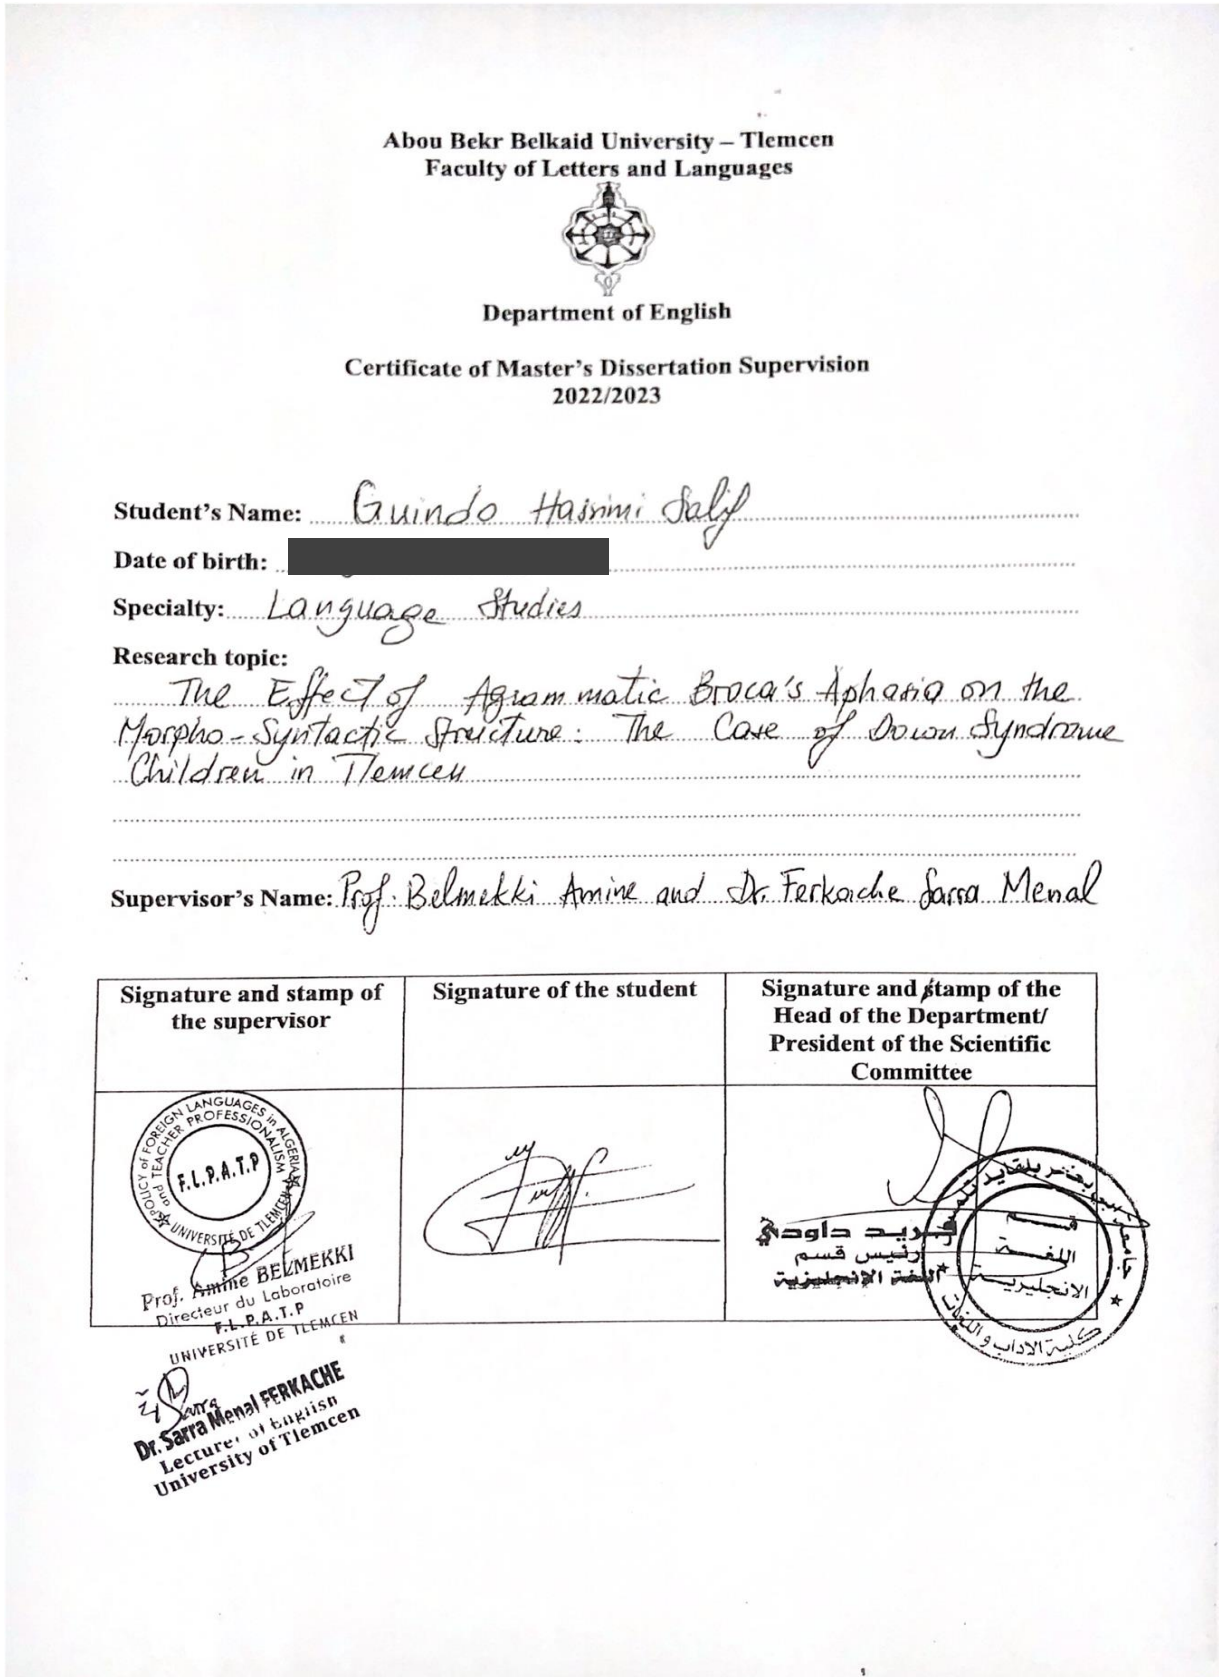 Abou Bekr Belkaid University – Tlemcen
Faculty of Letters and Languages
Department of English
Certificate of Master's Dissertation Supervision
2022/2023
Student's Name: Guindo Hasimi Salif
Date of birth:
Specialty: Language Studies
Research topic:
The Effect of Agrammatic Broca's Aphasia on the
Morpho-Syntactic Structure: The Case of Down Syndrome
Children in Tlemcen
Supervisor's Name: Prof. Belmekki Amine and Dr. Ferkache Sarra Menal
Signature and stamp of
the supervisor
Signature of the student
Signature and stamp of the
Head of the Department/
President of the Scientific
Committee
POLICY of FOREIGN LANGUAGES in ALGERIA
and TEACHER PROFESSIONALISM
F.L.P.A.T.P
UNIVERSITÉ DE TLEMCEN
Prof. Amine BELMEKKI
Directeur du Laboratoire
F.L.P.A.T.P
UNIVERSITÉ DE TLEMCEN
Sarra
Dr. Sarra Menal FERKACHE
Lecturer of English
University of Tlemcen
فريد داودي
رئيس قسم
اللغة الإنجليزية
قسم
اللغة
الانجليزية
كلية الآداب و اللغات